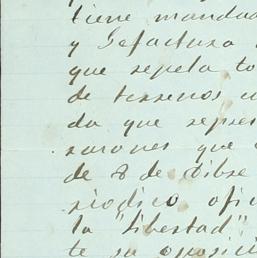 tiene mandad
y Gefactura
que sepela to
de terrenos
da que repres
sarones que
de 8 de Dibre
riodico ofi
la "Libertad"
te sa oposici